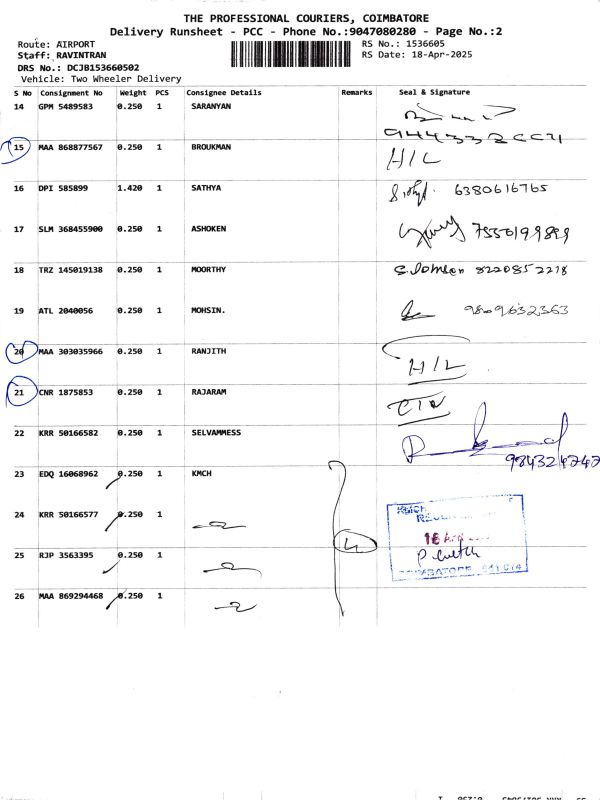 THE PROFESSIONAL COURIERS, COIMBATORE
Delivery Runsheet - PCC - Phone No.:9047080280 - Page No.:2
Route: AIRPORT RS No.: 1536605
Staff: RAVINTRAN RS Date: 18-Apr-2025
DRS No.: DCJB153660502
Vehicle: Two Wheeler Delivery
S No Consignment No Weight PCS Consignee Details Remarks Seal & Signature
14 GPM 5489583 0.250 1 SARANYAN
15 MAA 868877567 0.250 1 BROUKMAN H/L
16 DPI 585899 1.420 1 SATHYA 6380616765
17 SLM 368455900 0.250 1 ASHOKEN 7550199899
18 TRZ 145019138 0.250 1 MOORTHY 8220852218
19 ATL 2040056 0.250 1 MOHSIN. 9809632363
20 MAA 303035966 0.250 1 RANJITH H/L
21 CNR 1875853 0.250 1 RAJARAM
22 KRR 50166582 0.250 1 SELVAMMESS
23 EDQ 16068962 0.250 1 KMCH
24 KRR 50166577 0.250 1
25 RJP 3563395 0.250 1
26 MAA 869294468 0.250 1
COIMBATORE 641 014